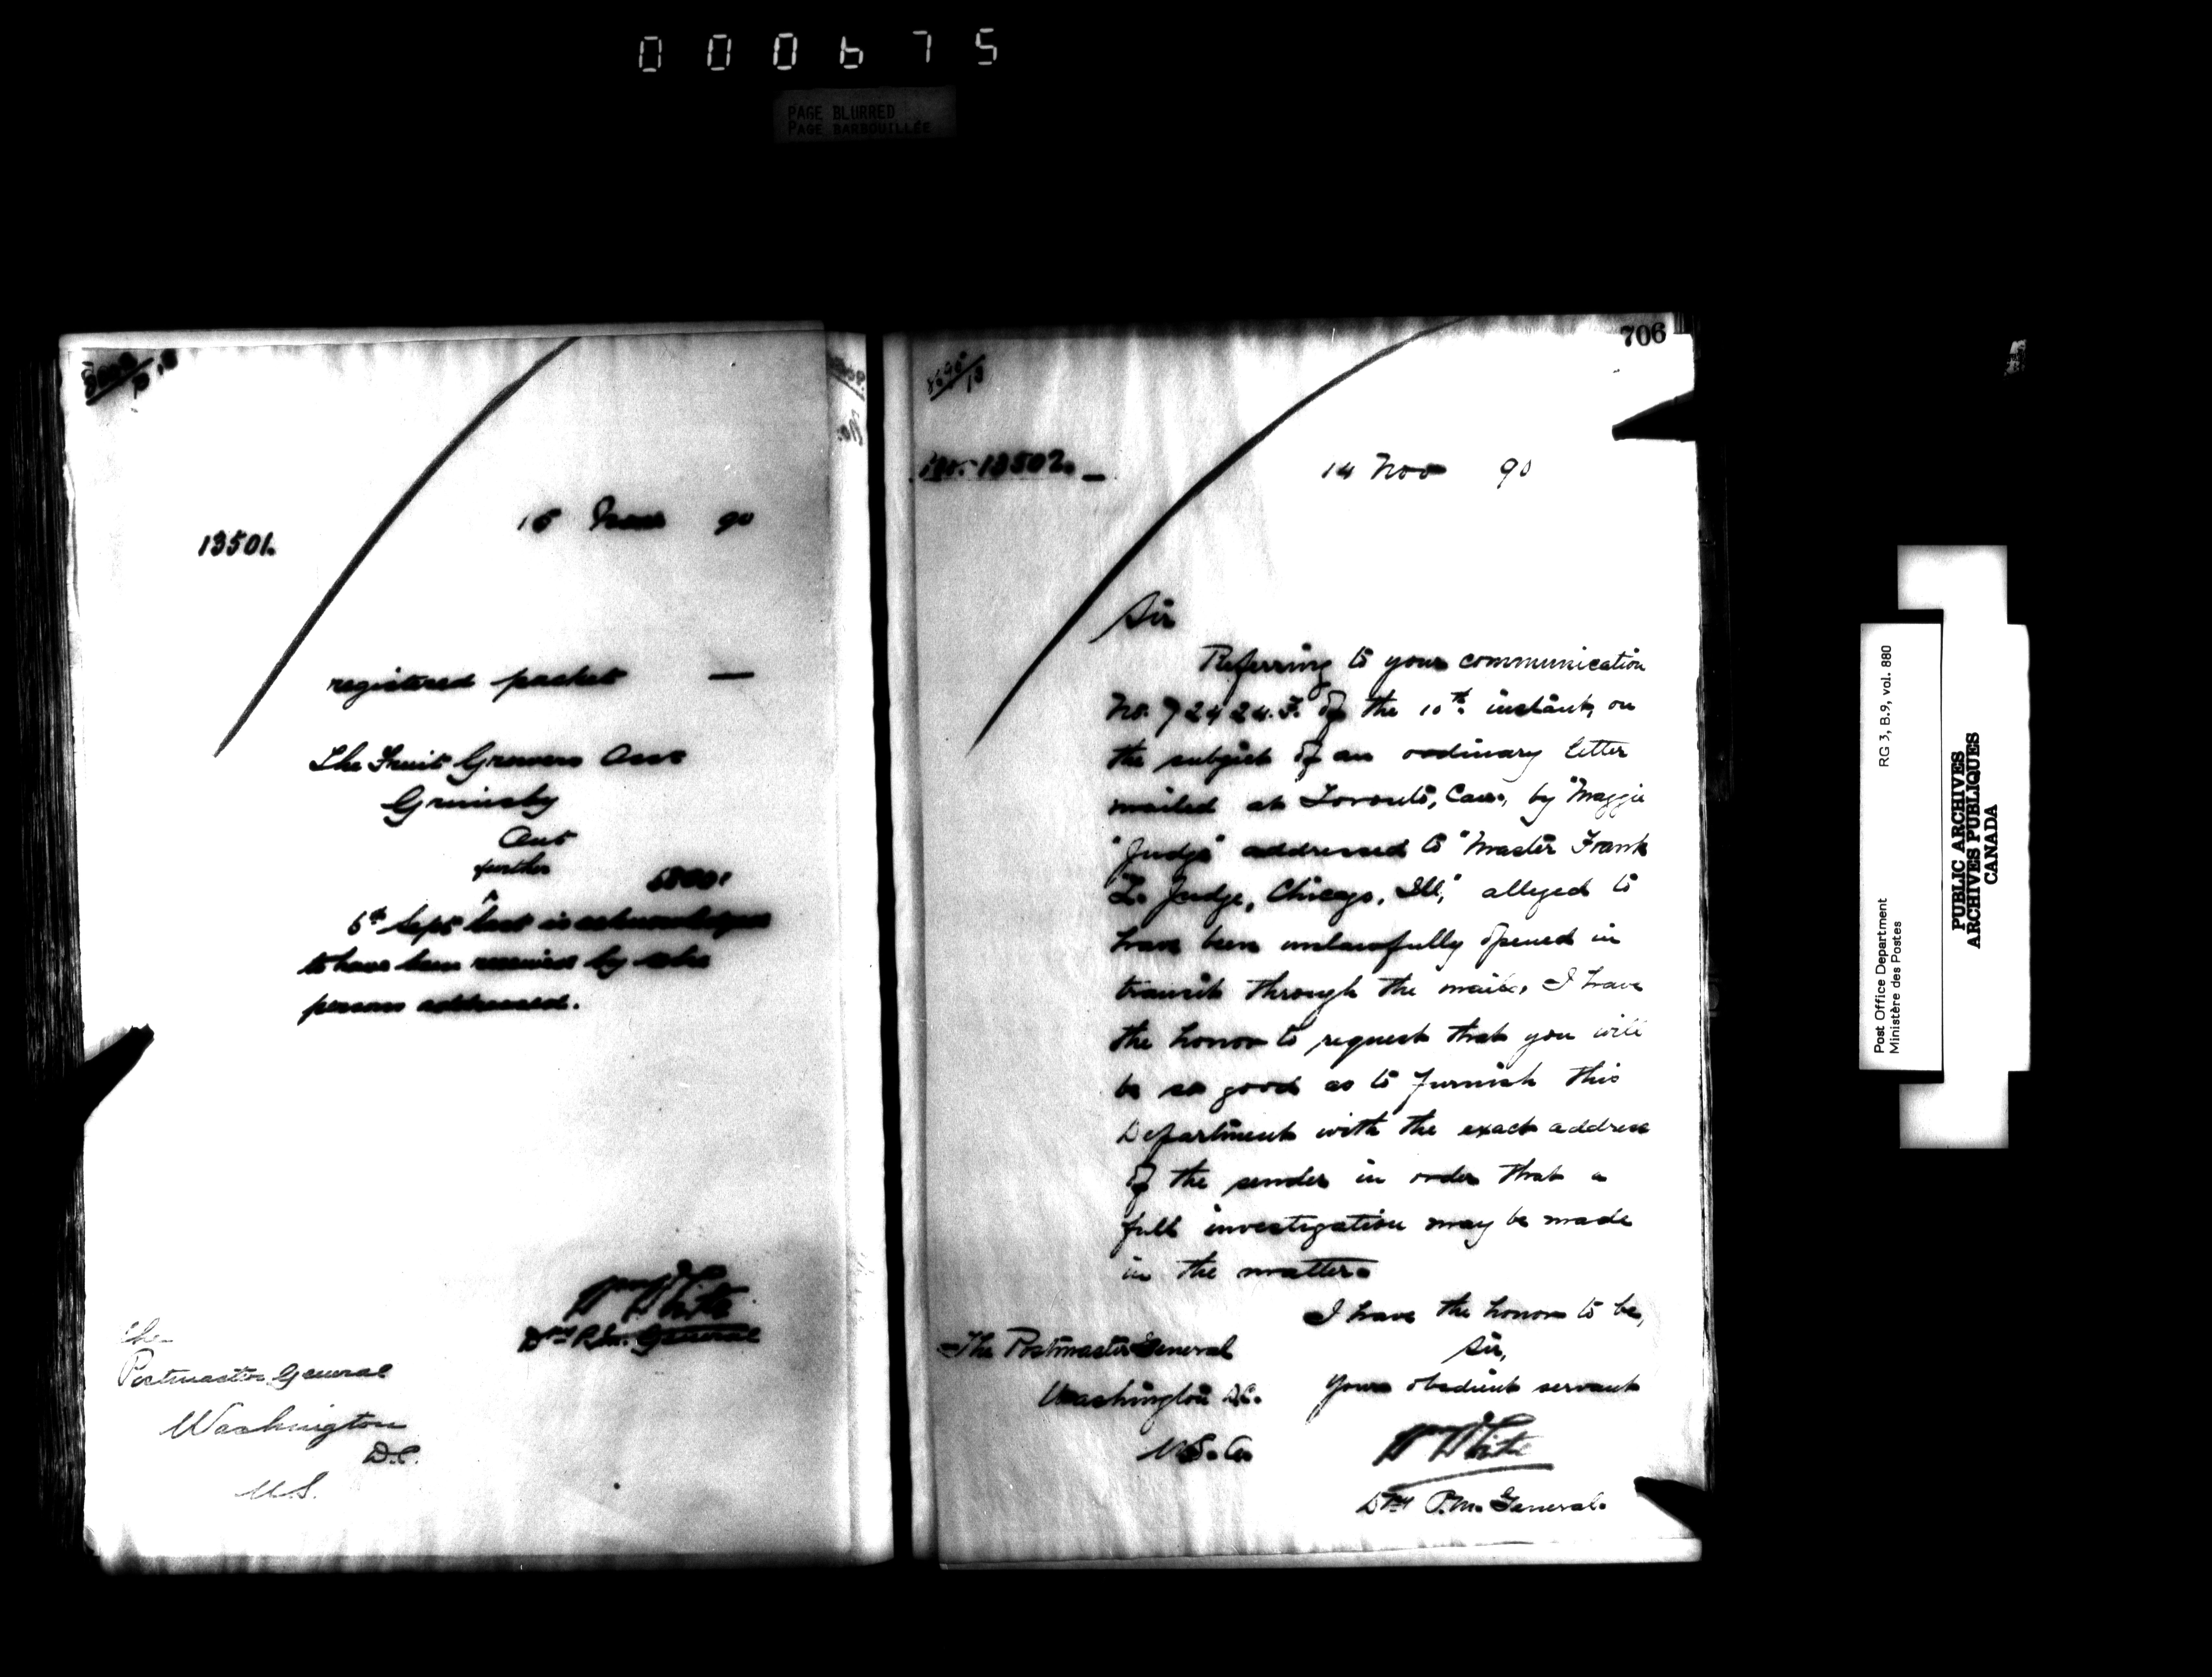 000675
PAGE BLURRED
PAGE BARBOUILLÉE
13501.
15 Nov 90
registered packet —
The Fruit Growers Assc
Grimsby
Ont
further
6th Sept last is acknowledged
to have been received by the
person addressed.
Wm White
Dpy P.M. General
The
Postmaster General
Washington
D.C.
U.S.
706
No. 13502. _
14 Nov 90
Sir
Referring to your communication
No. 72424.F. of the 10th. instant, on
the subject of an ordinary letter
mailed at Toronto, Can., by "Maggie
"Judge" addressed to "Master Frank
L. Judge, Chicago, Ill," alleged to
have been unlawfully opened in
transit through the mails, I have
the honor to request that you will
be so good as to furnish this
Department with the exact address
of the sender in order that a
full investigation may be made
in the matter.
I have the honor to be,
Sir,
Your obedient servant
Wm White
Dpy P.M. General.
The Postmaster General
Washington D.C.
U.S.A.
Post Office Department RG 3, B.9, vol. 880
Ministère des Postes
PUBLIC ARCHIVES
ARCHIVES PUBLIQUES
CANADA